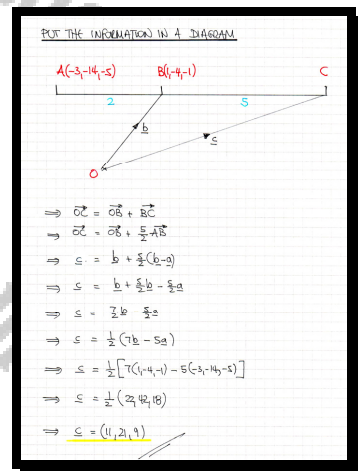 PUT THE INFORMATION IN A DIAGRAM
A(-3,-14,-5) B(1,-4,-1) C
2 5
b
c
O
⇒ OC = OB + BC
⇒ OC = OB + 5/2 AB
⇒ c = b + 5/2(b-a)
⇒ c = b + 5/2 b - 5/2 a
⇒ c = 7/2 b 5/2 a
⇒ c = 1/2 (7b - 5a)
⇒ c = 1/2 [7(1,-4,-1) - 5(-3,-14,-5)]
⇒ c = 1/2 (22,42,18)
⇒ c = (11,21,9)